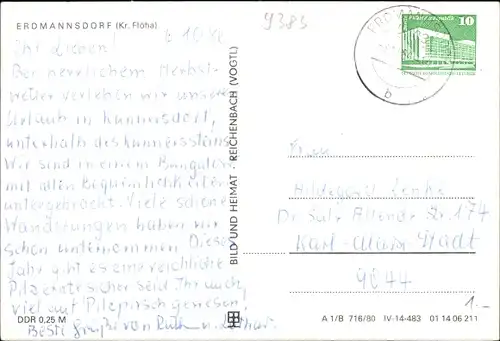 ERDMANNSDORF (Kr. Flöha)
9385
Ihr Lieben! 6.10.82
Bei herrlichem Herbst-
wetter verleben wir unseren
Urlaub in Kunnersdorf,
unterhalb des Kunnerssteins.
Wir sind in einem Bungalow
mit allen Bequemlichkeiten
untergebracht. Viele schöne
Wandrungen haben wir
schon unternommen. Dieses
Jahr gibt es eine reichliche
Pilzernte sicher seid Ihr auch
viel auf Pilzpirsch gewesen.
Beste Grüße von Ruth u. Lothar.
DDR 0,25 M
BILD UND HEIMAT REICHENBACH (VOGTL)
10
b
Frau
Hildegard
Dr. Salv. Allende Str. 174
Karl-Marx-Stadt
9044
1.-
A 1/B 716/80 IV-14-483 01 14 06 211